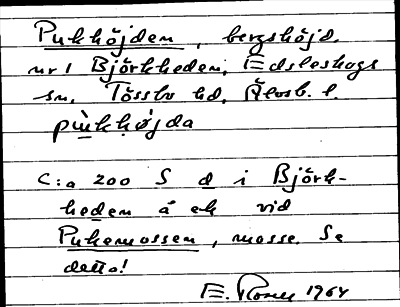 Pukhöjden, bergshöjd.
nr 1 Björkheden, Edsleskogs
sn, Tössbo hd, Älvsb. l.
pùkhọ̈jda
C:a 200 S d i Björk-
heden å ek vid
Pukemossen, mosse. Se
detta!
E. 1964